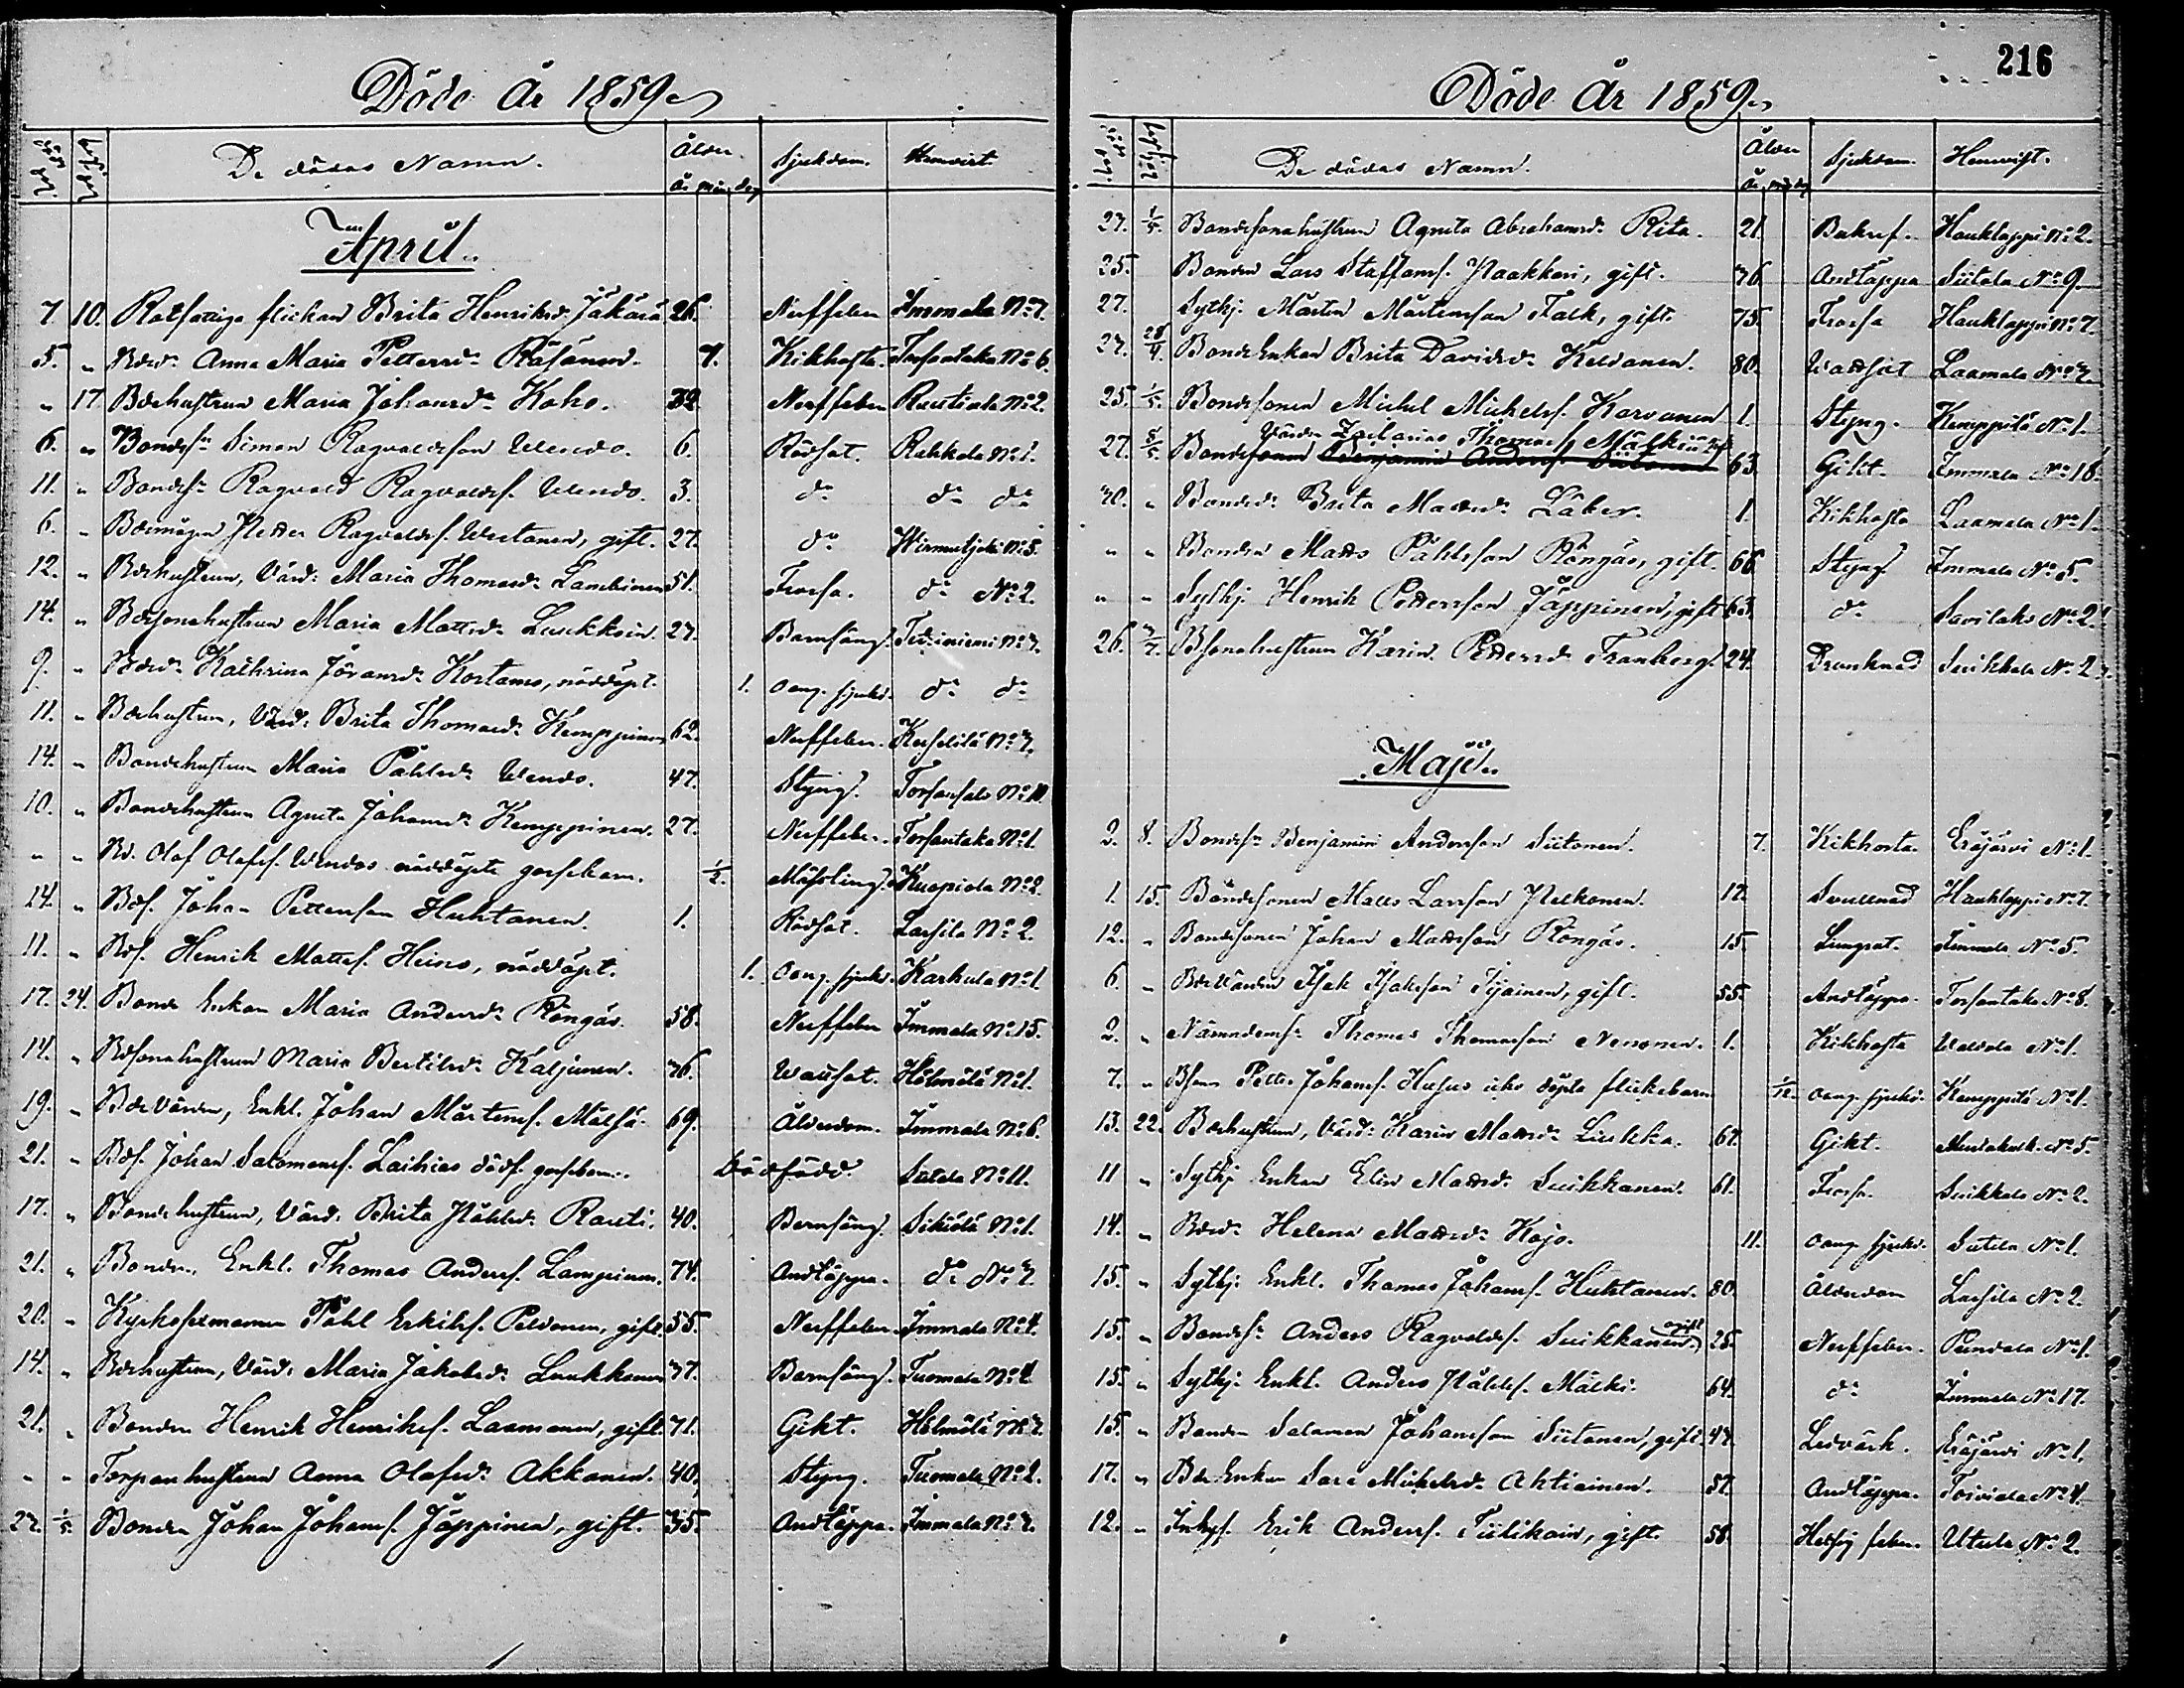 Döde År 1859
död dag. begr. dag De dödas Namn. Ålder år mån. dag Sjukdom. Hemvist
April.
7. 10. Rotfattiga flickan Brita Henriksd:r Jäkärä 26. Nerffeber Immala No 7.
5. " Bded:r Anna Maria Pettersd:r Räsänen. 7. Kikhosta. Torsantaka No 6.
" 17 Bdehustrun Maria Johansd:r Koho. 32 Nerffeber Rautiala No 2.
6. " Bondes:n Simon Ragvaldsson Wendo. 6. Rödsot. Rahkola No 1.
11. " Bondes:n Ragvald Ragvaldss. Wendo. 3. d:o d:o d:o
6. " Bdemågen Petter Ragvaldss. Westanen, gift. 27. d:o No 5.
12. " Bdehustrun, Värd: Maria Thomasd:r Lambinen 51. Frossa. d:o No 2.
14. " Bdesonahustrun Maria Mattsd:r Luukkoin. 27. Barnsäng. No 7.
9. " Bded:r Kathrina Göransd:r Kortama, nöddöpt. 1. Oang. sjukd. d:o d:o
11. " Bdehustrun, Värd: Brita Thomasd:r Kemppinen 62. Nerffeber. Keskilä No 7.
14. " Bondehustrun Maria Påhlsd:r Wendo. 47. Styng. Torsansalo No 10.
10. " Bondehustrun Agneta Johansd:r Kemppinen. 27. Nerffeber. Torsantaka No 1.
" " Bd. Olof Olofss. Wendos nöddöpte gossebarn. 1/2. Mässling. Kuopiola No 2.
14. " Bdes. Johan Pettersson Huhtanen. 1. Rödsot. Lassila No 2.
11. " Bds. Henrik Mattss. Heino, nöddöpt. 1. Oang. sjukd. Karhula No 1
17. 24. Bonde Enkan Maria Andersd:r Röngäs. 58. Nerffeber Immala No 15.
14. " Bdsonahustrun Maria Bertilsd:r Kaljunen. 76. Wattsot. Hölmölä No 1.
19. " Bdevärden, Enkl. Johan Mårtenss. Mälkiä. 69. Ålderdom. Immala No 6.
21. " Bds. Johan Salomonss. Laihias dödf. gossebarn. Dödfödd. No 11.
17. " Bondehustrun, Värd. Brita Påhlsd:r Rauti. 40. Barnsäng. No 1.
21. " Bonden, Enkl. Thomas Anderss. Lampinen. 74. Andtäppa. d:o No 7.
20. " Kyrkosexmannen Påhl Erikss. Peldonen, gift. 55. Nerffeber. Immala No 4.
14. " Bdehustrun, Värd: Maria Jakobsd:r Luukkonen 37. Barnsäng. Tuomala No 4.
21. " Bonden Henrik Henrikss. Laamanen, gift. 71. Gikt. Hölmölä No 7.
" " Torparehustrun Anna Olofsd:r Akkanen. 40, Styng. Tuomala No 2.
27. 1/5. Bonden Johan Johanss. Jäppinen, gift. 35. Andtäppa. Immala No 7.
216
Döde År 1859.
död dag. begr. dag De dödas Namn. Ålder år mån dag Sjukdom. Hemvist.
27. 1/5. Bondesonahustrun Agneta Abrahamsd:r Rita. 21. Haukkappi No 2.
25. Bonden Lars Staffanss. Naakkari, gift. 76 Andtäppa Siitola No 9.
27. Sytkj. Mårten Mårtensson Falk, gift. 75. Frossa Haukkappi No 7.
27. 28/4. Bonde Enkan Brita Davidsd:r Keldanen. 80. Wattsot Laamala No 7.
25. 1/5. Bondesonen Michel Michelss. Karvanen 1. Styng. Kemppilä No 1.
Värden Zacharias Thomass. Mälkiä
27. 8/5. Bondesonen Benjamin Anderss. Siitonen 63. Gikt. Immala No 18.
30. " Bonded:r Brita Mattsd:r Läber. 1. Kikhosta Laamala No 1.
" " Bonden Matts Påhlsson Röngäs, gift. 66. Styng Immala No 5.
" " Sytkj. Henrik Pettersson Jäppinen, gift 63. d:o Savilaks No 2.
26. Bsonahustrun Karin Pettersd:r Franberg. 24. Drunknad Suikkala No 2.
Maji.
2. 8. Bondes:n Benjamin Andersson Siitonen. 7. Kikhosta. Eräjärvi No 1.
1. 15. Bondesonen Matts Larsson Pelkonen. 12. Svullnad Haukkappi No 7.
12. " Bondesonen Johan Mattsson Röngäs. 15 Lungsot. Immala No 5.
6. " Bdevärden Isak Isaksson Tijainen, gift. 55. Andtäppa. Torsantaka No 8.
2. " Nämndems:n Thomas Thomasson Nenonen. 1. Kikhosta No 1.
7. " Bsens Petter Johanss. Husus icke döpta flickebarn 1/12. Oang. sjukd. Kemppilä No 1.
13. 22. Bdehustrun, Värd: Karin Mattsd:r Liukka. 67. Gikt. No 5.
11 " Sytkj Enkan Elin Mattsd:r Suikkanen. 61. Frossa. Suikkala No 2.
14. " Bded:r Helena Mattsd:r Kojo. 11. Oang. sjukd. Siitola No 1.
15. " Sytkj. Enkl. Thomas Johanss. Huhtanen. 80. Ålderdom Lassila No 2.
15. " Bondes:n Anders Ragvaldss. Suikkanen, ogift 25. Nerffeber. Pundala No 1.
15. " Sytkj. Enkl. Anders Påhlss. Mälki. 64. d:o Immala No 17.
15. " Bonden Salomon Johansson Siitonen, gift. 47. Ledvärk. Eräjärvi No 1.
17. " Bde Enkan Sara Michelsd:r Ahtiainen. 57. Andtäppa. Toiviala No 4.
12. " Inhys. Erik Anderss. Tiilikain, gift. 58. Hetsig feber. Utula No 2.